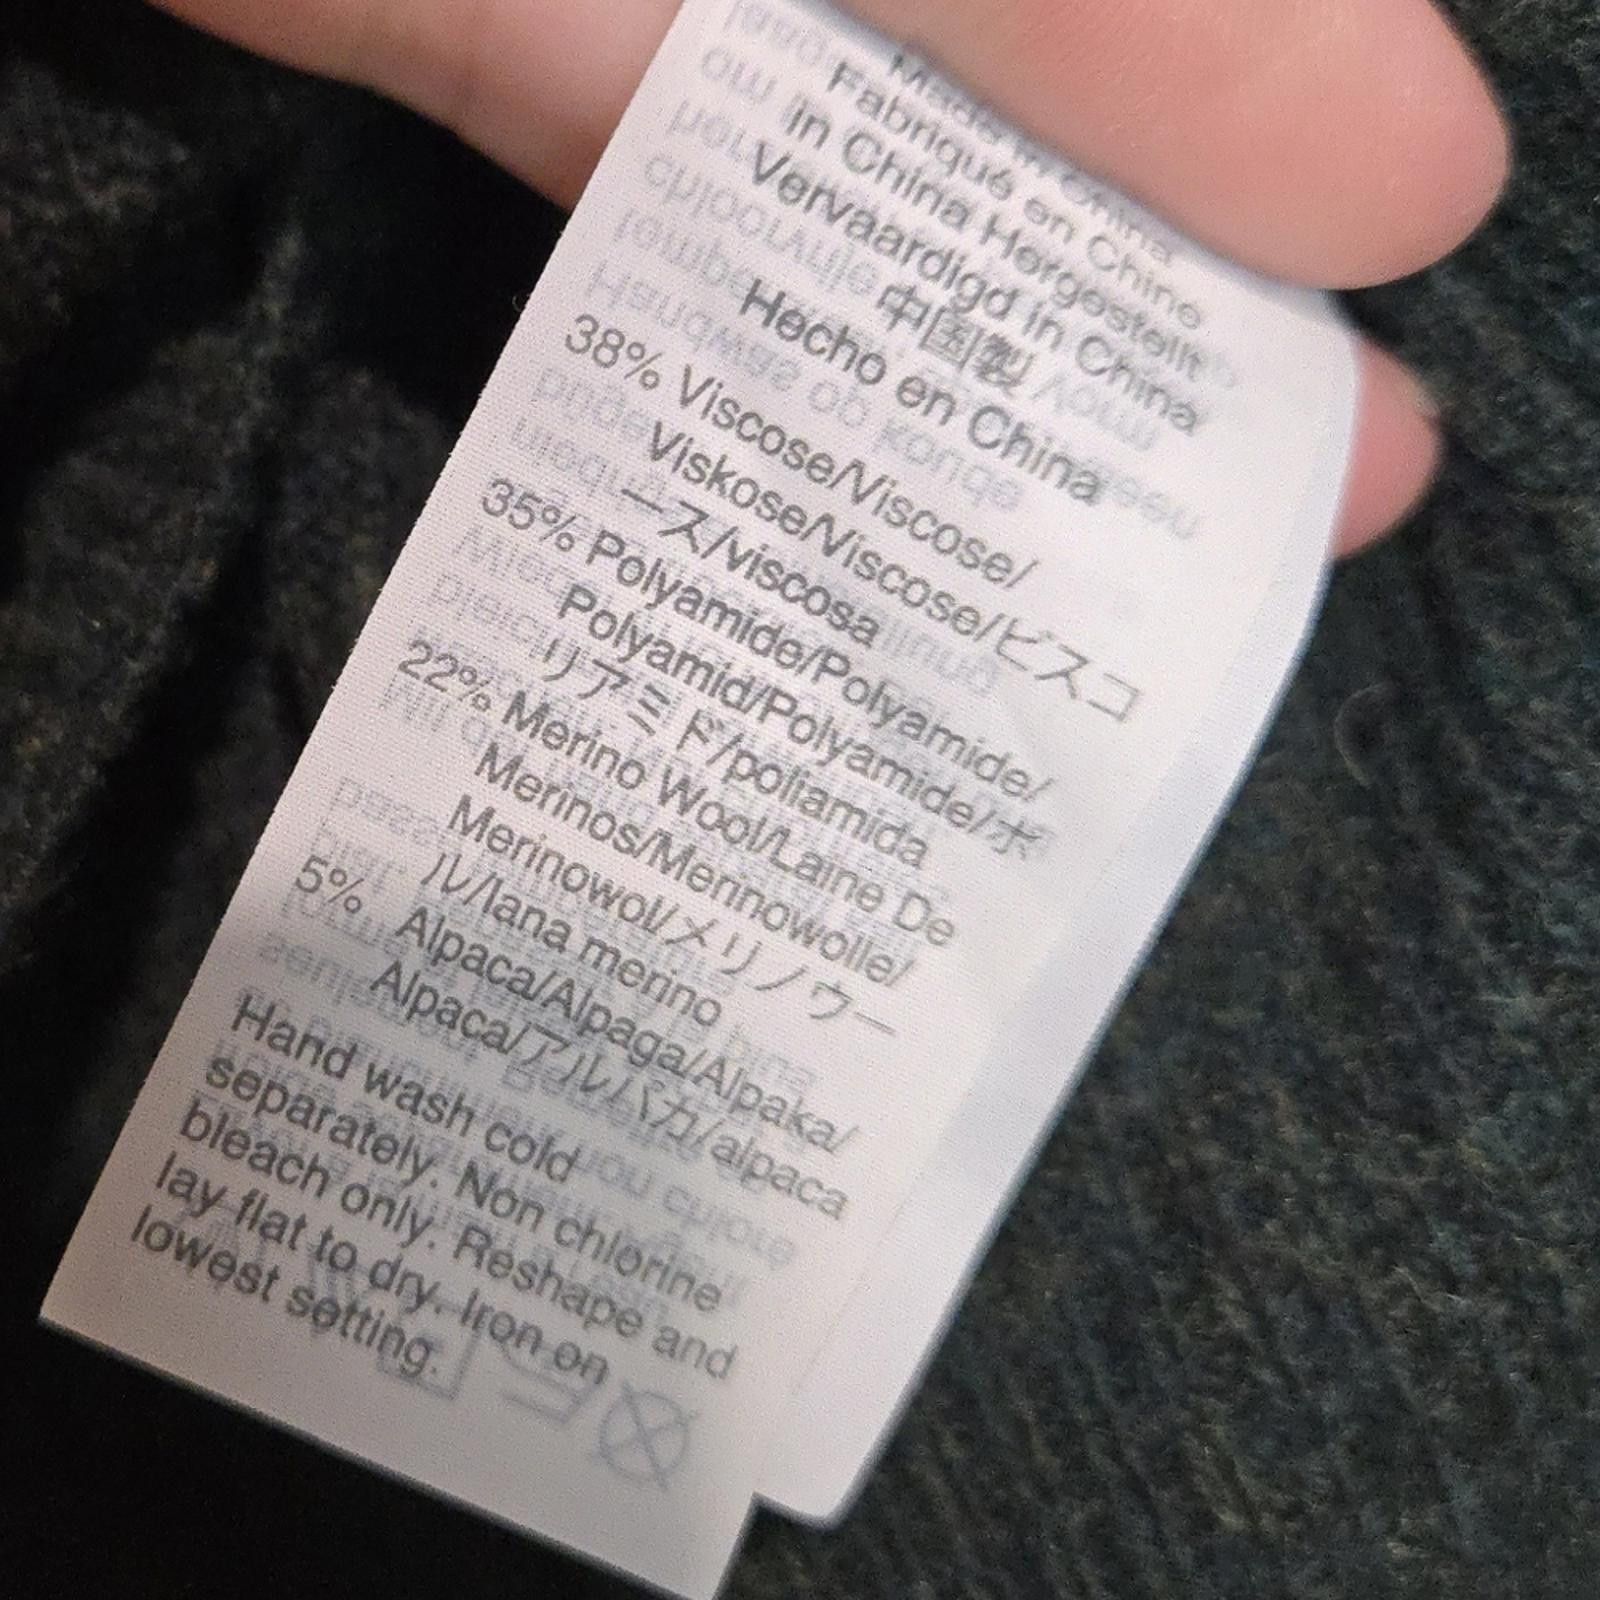 Made in China
Fabriqué en Chine
in China Hergestellt
Vervaardigd in China
中国製
Hecho en China
38% Viscose/Viscose/
Viskose/Viscose/ビスコ
ース/viscosa
35% Polyamide/Polyamide/
Polyamid/Polyamide/ポ
リアミド/poliamida
22% Merino Wool/Laine De
Merinos/Merinowolle/
Merinowol/メリノウー
ル/lana merino
5% Alpaca/Alpaga/Alpaka/
Alpaca/アルパカ/alpaca
Hand wash cold
separately. Non chlorine
bleach only. Reshape and
lay flat to dry. Iron on
lowest setting.